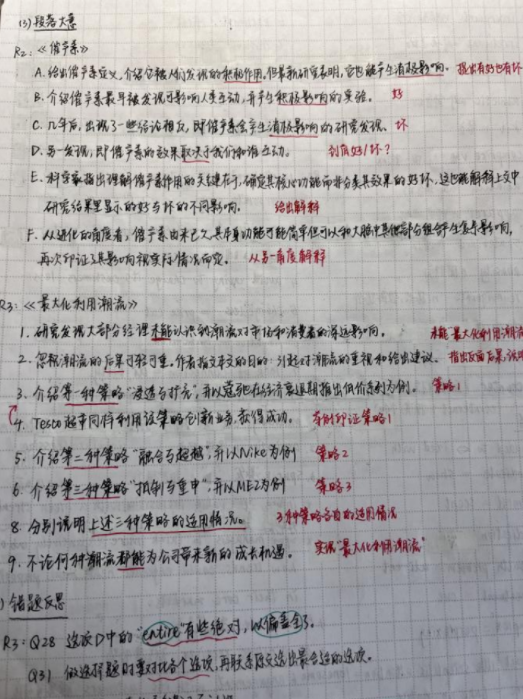 (3) 段落大意
R2:《催产素》
A. 给出催产素定义,介绍它被人们发现的积极作用,但最新研究表明,它也能产生消极影响。 提出有好也有坏
B. 介绍催产素最早被发现可影响人类互动,并产生积极影响的实验。 好
C. 几年后,出现了一些结论相反,即催产素会产生消极影响的研究发现。 坏
D. 另一发现,即催产素的效果取决于我们和谁互动。 到底好/坏?
E. 科学家指出理解催产素作用的关键在于,确定其核心功能而非分类其效果的好坏,这也能解释上文中
研究结果里显示的好与坏的不同影响。 给出解释
F. 从进化的角度看,催产素由来已久,其本身功能可能简单但可以和大脑中其他部分组合产生复杂影响,
再次印证了其影响视实际情况而定。 从另一角度解释
R3:《最大化利用潮流》
1. 研究发现大部分经理未能认识到潮流对市场和消费者的深远影响。 未能"最大化利用潮流
2. 忽视潮流的后果可轻可重,作者指文本文的目的:引起对潮流的重视和给出建议。 指出反面后果,说明
3. 介绍第一种策略"渗透与扩充",并以蔻驰在经济衰退期推出低价系列为例。 策略1
4. Tesco超市同样利用该策略创新业务,获得成功。 举例印证策略1
5. 介绍第二种策略"融合与超越",并以Nike为例 策略2
6. 介绍第三种策略"抵制与重申",并以ME2为例 策略3
8. 分别说明上述三种策略的适用情况。 3种策略各自的适用情况
9. 不论何种潮流都能为公司带来新的成长机遇。 实现"最大化利用潮流"
) 错题反思
R3: Q28 选项D中的"entire"有些绝对,以偏盖全了。
Q31 做选择题时要对比各个选项,再联系原文选出最合适的选项。